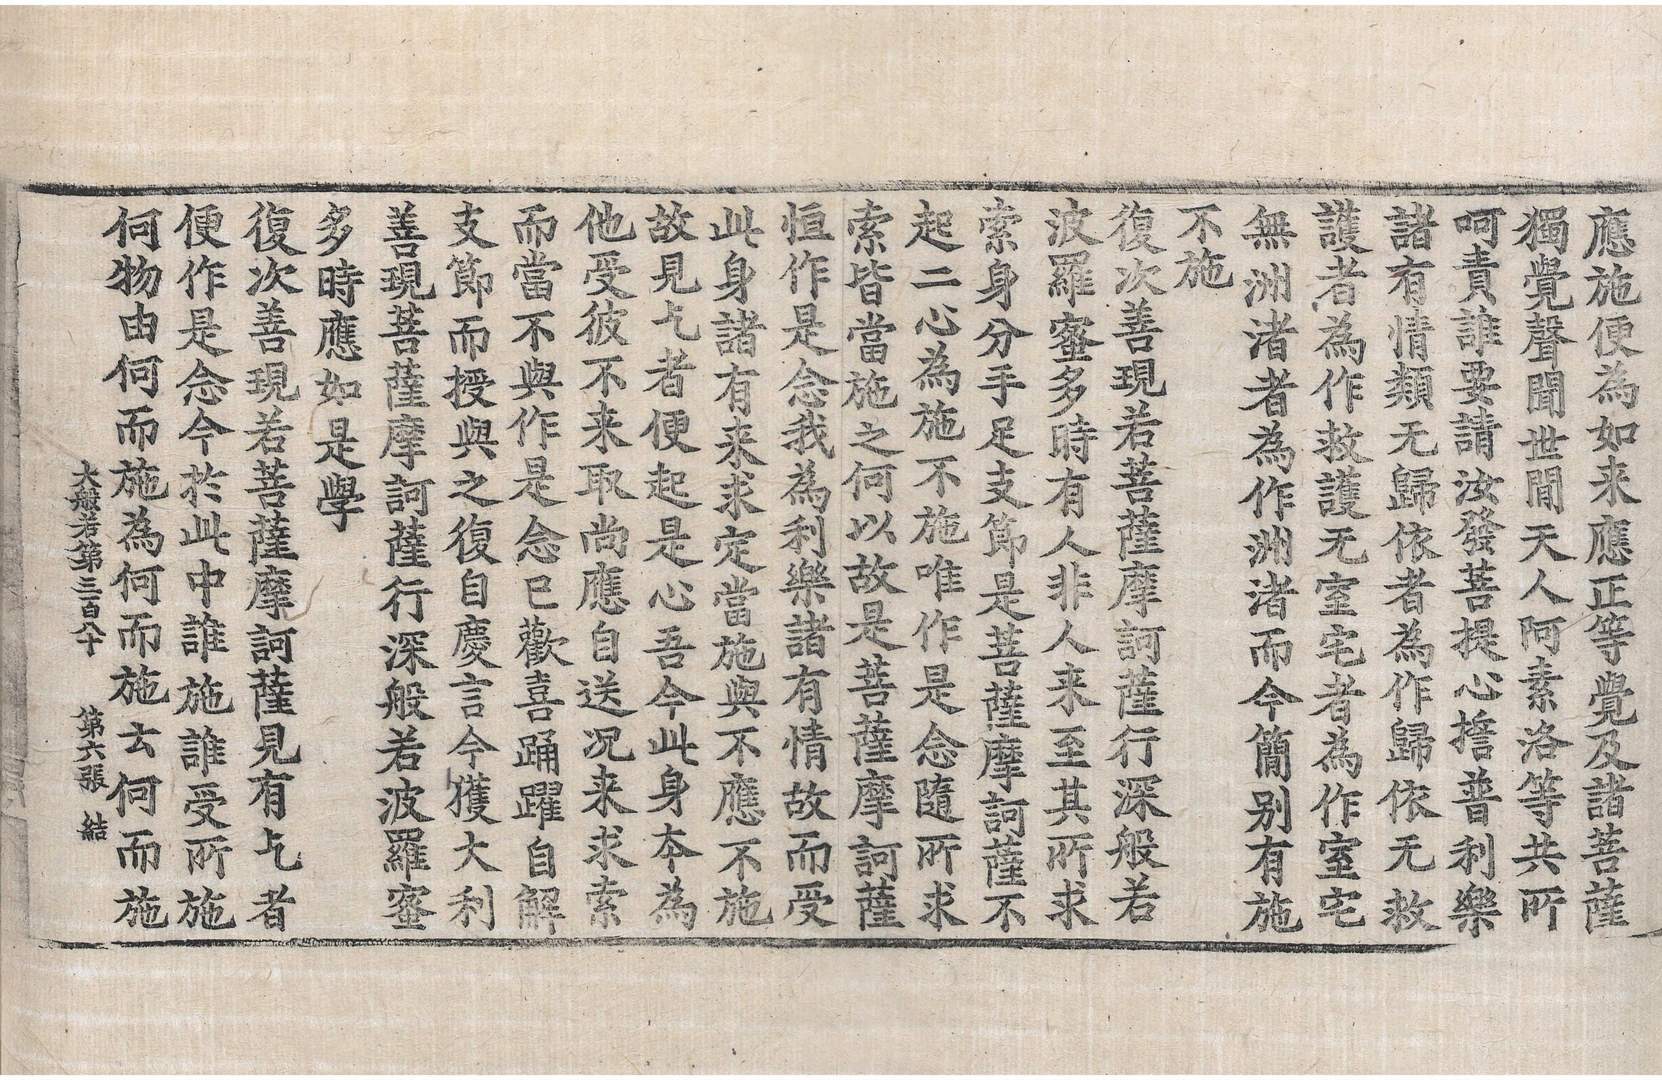 應施便為如来應正等覺及諸菩薩
獨覺聲聞世間天人阿素洛等共所
呵責誰要請汝發菩提心擔普利樂
諸有情類无歸依者為作歸依无救
護者為作救護无室宅者為作室宅
無洲渚者為作洲渚而今簡别有施
不施
復次善現若菩薩摩訶薩行深般若
波羅蜜多時有人非人来至其所求
索身分手足支節是菩薩摩訶薩不
起二心為施不施唯作是念隨所求
索皆當施之何以故是菩薩摩訶薩
恒作是念我為利樂諸有情故而受
此身諸有来求定當施與不應不施
故見乞者便起是心吾今此身夲為
他受彼不来取尚應自送况来求索
而當不與作是念已歡喜踊躍自解
支節而授與之復自慶言今獲大利
善現菩薩摩訶薩行深般若波羅蜜
多時應如是學
復次善現若菩薩摩訶薩見有乞者
便作是念今於此中誰施誰受所施
何物由何而施為何而施云何而施
大般若第三百八十 第六張 結